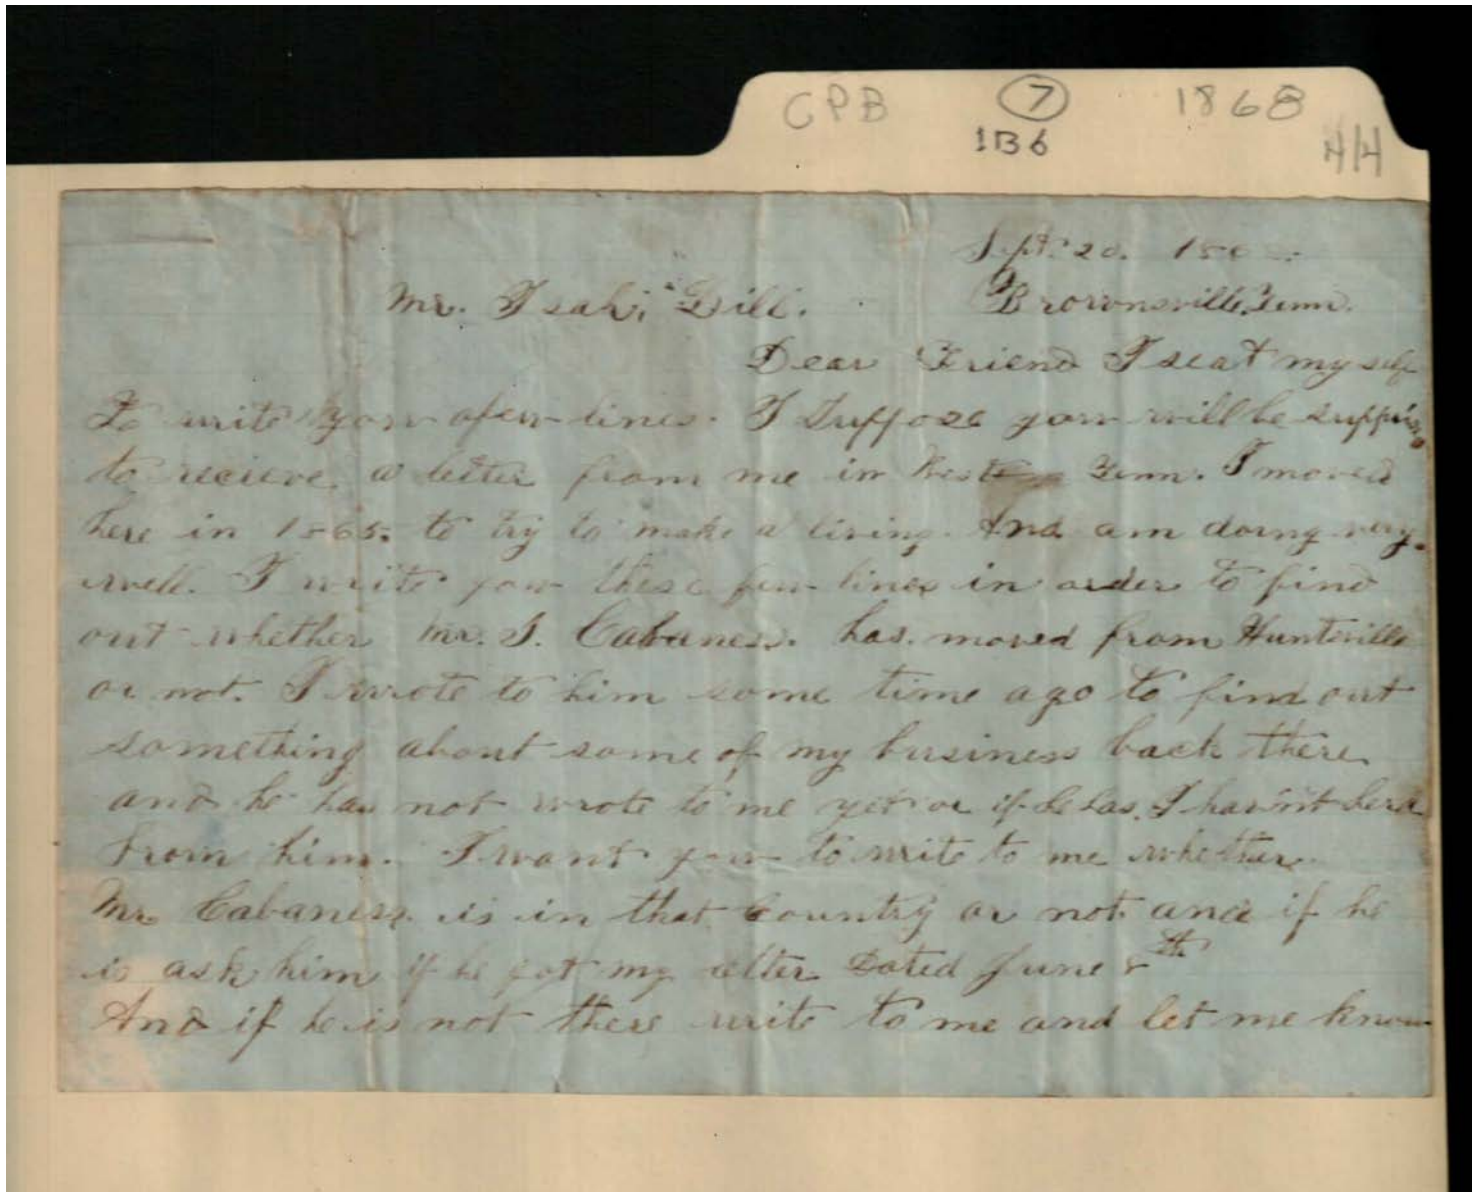 CPB 7 1868
1B6 4/4
Sept. 20.
Mr. Isah, Gill. Brownsville, Tenn.
Dear Friend I seat my self
To write you a few lines. I Suppose you will be
to recieve a letter from me in West Tenn. I moved
here in 1865. to try to make a living. And am doing very
well. I write you these few lines in order to find
out whether Mr. S. Cabaness. has. moved from Huntsville
or not. I wrote to him some time ago to find out
something about some of my business back there
and he has not wrote to me yet or if he has. I hav'nt herd
From him. I want you to write to me whether.
Mr. Cabaness. is in that Country or not. and if he
is ask him if he got my letter Dated June 8th
And if he is not there write to me and let me know